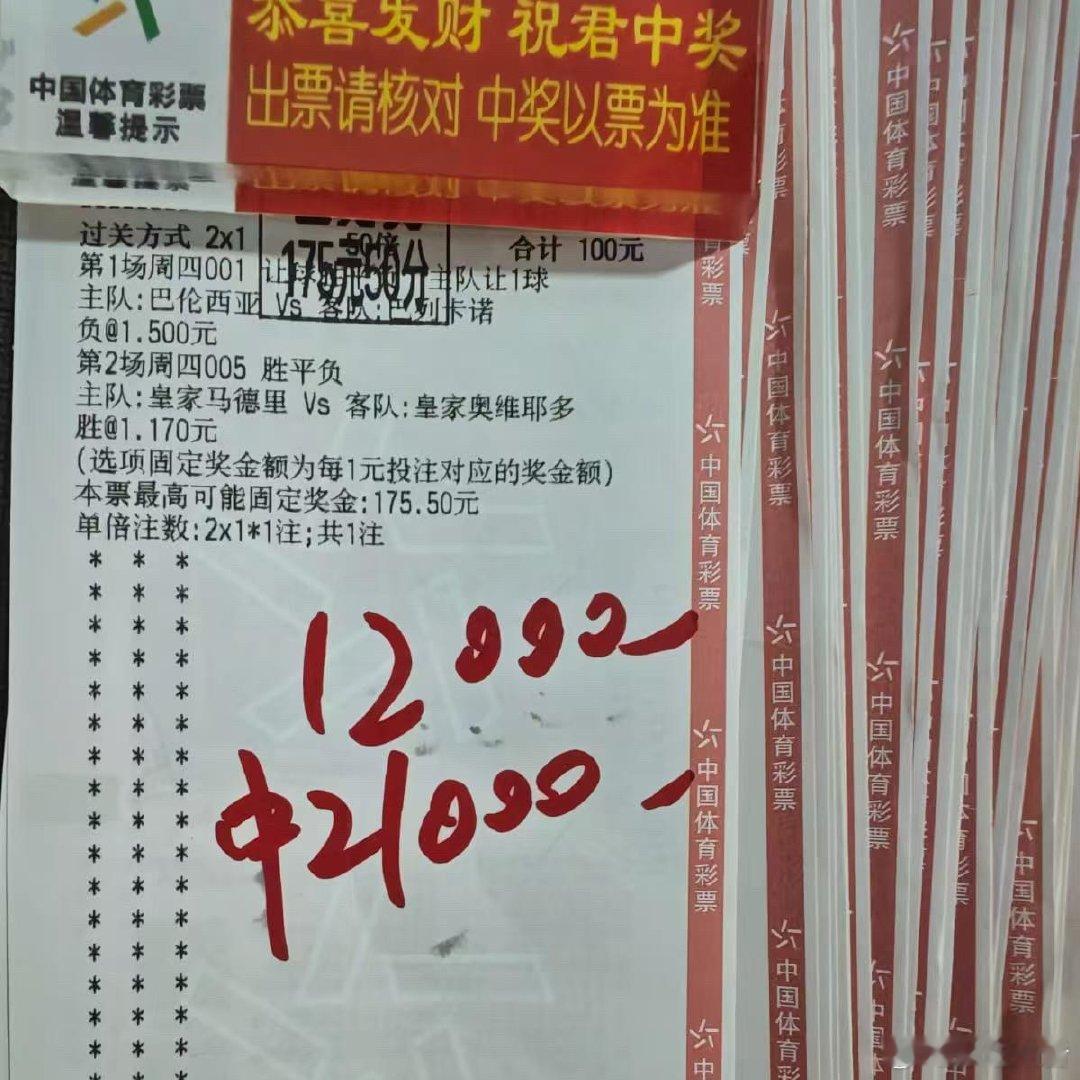 恭喜发财 祝君中奖
中国体育彩票
温馨提示
出票请核对 中奖以票为准
过关方式 2x1
50倍
合计 100元
175元50分
第1场周四001 让球
主队让1球
主队:巴伦西亚 Vs 客队:巴列卡诺
负@1.500元
第2场周四005 胜平负
主队:皇家马德里 Vs 客队:皇家奥维耶多
胜@1.170元
(选项固定奖金额为每1元投注对应的奖金额)
本票最高可能固定奖金:175.50元
单倍注数:2x1*1注;共1注
12000
中21000
中国体育彩票
中国体育彩票
中国体育彩票
中国体育彩票
中国体育彩票
中国体育彩票
中国体育彩票
中国体育彩票
中国体育彩票
中国体育彩票